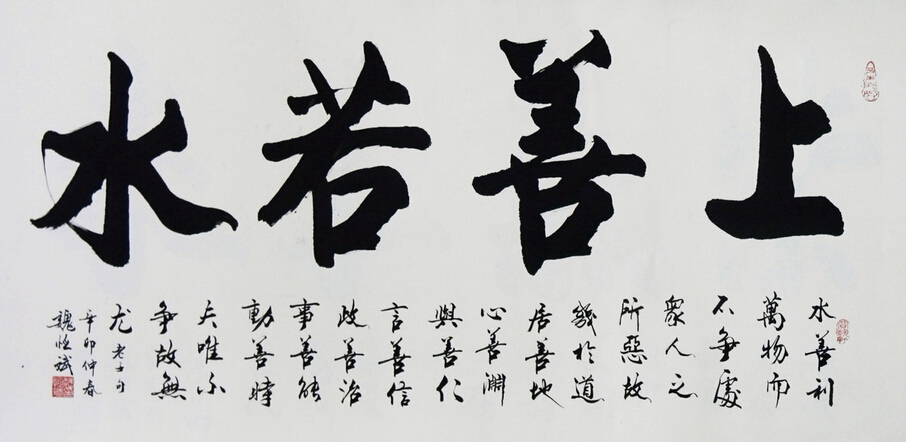 上善若水
水善利
萬物而
不争處
衆人之
所惡故
幾於道
居善地
心善淵
與善仁
言善信
政善治
事善能
動善時
夫唯不
争故無
尤 老子句
辛卯仲春
魏恒斌